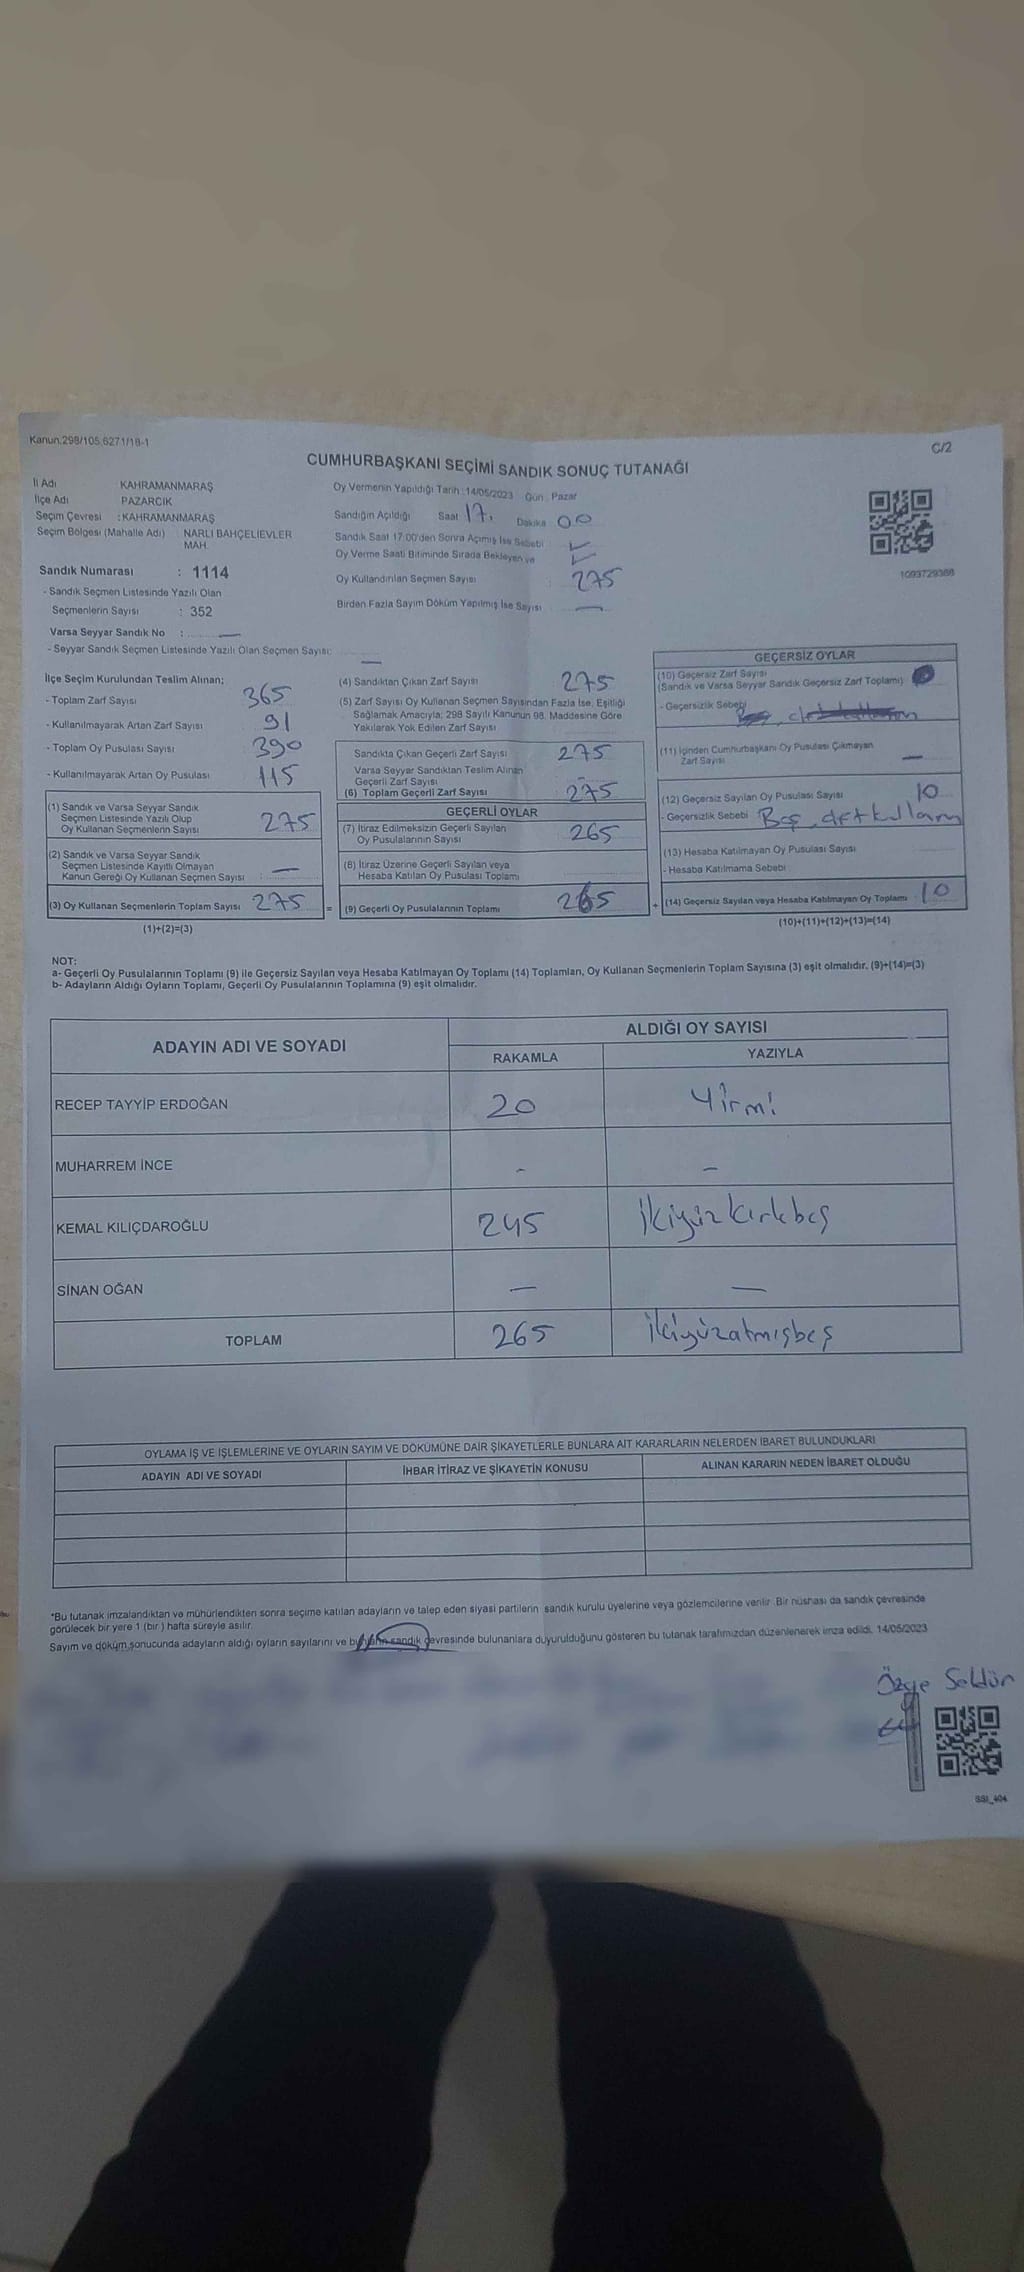 Kanun.298/105,6271/18-1
C/2
CUMHURBAŞKANI SEÇİMİ SANDIK SONUÇ TUTANAĞI
İl Adı KAHRAMANMARAŞ
İlçe Adı PAZARCIK
Seçim Çevresi : KAHRAMANMARAŞ
Seçim Bölgesi (Mahalle Adı) NARLI BAHÇELİEVLER
MAH.
Sandık Numarası : 1114
- Sandık Seçmen Listesinde Yazılı Olan
Seçmenlerin Sayısı : 352
Varsa Seyyar Sandık No : —
- Seyyar Sandık Seçmen Listesinde Yazılı Olan Seçmen Sayısı: —
Oy Vermenin Yapıldığı Tarih : 14/05/2023 Gün : Pazar
Sandığın Açıldığı Saat 17. Dakika 00
Sandık Saat 17:00'den Sonra Açımış İse Sebebi
Oy Verme Saati Bitiminde Sırada Bekleyen ve
Oy Kullandırılan Seçmen Sayısı 275
Birden Fazla Sayım Döküm Yapılmış İse Sayısı —
1093729388
İlçe Seçim Kurulundan Teslim Alınan;
- Toplam Zarf Sayısı 365
- Kullanılmayarak Artan Zarf Sayısı 91
- Toplam Oy Pusulası Sayısı 390
- Kullanılmayarak Artan Oy Pusulası 115
(1) Sandık ve Varsa Seyyar Sandık
Seçmen Listesinde Yazılı Olup
Oy Kullanan Seçmenlerin Sayısı 275
(2) Sandık ve Varsa Seyyar Sandık
Seçmen Listesinde Kayıtlı Olmayan
Kanun Gereği Oy Kullanan Seçmen Sayısı —
(3) Oy Kullanan Seçmenlerin Toplam Sayısı 275 =
(1)+(2)=(3)
(4) Sandıktan Çıkan Zarf Sayısı 275
(5) Zarf Sayısı Oy Kullanan Seçmen Sayısından Fazla İse, Eşitliği
Sağlamak Amacıyla; 298 Sayılı Kanunun 98. Maddesine Göre
Yakılarak Yok Edilen Zarf Sayısı
Sandıkta Çıkan Geçerli Zarf Sayısı 275
Varsa Seyyar Sandıktan Teslim Alınan
Geçerli Zarf Sayısı -
(6) Toplam Geçerli Zarf Sayısı 275
GEÇERLİ OYLAR
(7) İtiraz Edilmeksizin Geçerli Sayılan
Oy Pusulalarının Sayısı 265
(8) İtiraz Üzerine Geçerli Sayılan veya
Hesaba Katılan Oy Pusulası Toplamı
(9) Geçerli Oy Pusulalarının Toplamı 265 +
GEÇERSİZ OYLAR
(10) Geçersiz Zarf Sayısı
(Sandık ve Varsa Seyyar Sandık Geçersiz Zarf Toplamı)
- Geçersizlik Sebebi
(11) İçinden Cumhurbaşkanı Oy Pusulası Çıkmayan
Zarf Sayısı —
(12) Geçersiz Sayılan Oy Pusulası Sayısı 10
- Geçersizlik Sebebi Boş, çift kullanım
(13) Hesaba Katılmayan Oy Pusulası Sayısı
- Hesaba Katılmama Sebebi
(14) Geçersiz Sayılan veya Hesaba Katılmayan Oy Toplamı 10
(10)+(11)+(12)+(13)=(14)
NOT:
a- Geçerli Oy Pusulalarının Toplamı (9) ile Geçersiz Sayılan veya Hesaba Katılmayan Oy Toplamı (14) Toplamları, Oy Kullanan Seçmenlerin Toplam Sayısına (3) eşit olmalıdır. (9)+(14)=(3)
b- Adayların Aldığı Oyların Toplamı, Geçerli Oy Pusulalarının Toplamına (9) eşit olmalıdır.
ADAYIN ADI VE SOYADI ALDIĞI OY SAYISI
RAKAMLA YAZIYLA
RECEP TAYYİP ERDOĞAN 20 Yirmi
MUHARREM İNCE - -
KEMAL KILIÇDAROĞLU 245 İkiyüzkırkbeş
SİNAN OĞAN — —
TOPLAM 265 İkiyüzatmışbeş
OYLAMA İŞ VE İŞLEMLERİNE VE OYLARIN SAYIM VE DÖKÜMÜNE DAİR ŞİKAYETLERLE BUNLARA AİT KARARLARIN NELERDEN İBARET BULUNDUKLARI
ADAYIN ADI VE SOYADI İHBAR İTİRAZ VE ŞİKAYETİN KONUSU ALINAN KARARIN NEDEN İBARET OLDUĞU
*Bu tutanak imzalandıktan ve mühürlendikten sonra seçime katılan adayların ve talep eden siyasi partilerin sandık kurulu üyelerine veya gözlemcilerine verilir. Bir nüshası da sandık çevresinde
görülecek bir yere 1 (bir) hafta süreyle asılır.
Sayım ve döküm sonucunda adayların aldığı oyların sayılarını ve bunların sandık çevresinde bulunanlara duyurulduğunu gösteren bu tutanak tarafımızdan düzenlenerek imza edildi. 14/05/2023
Özge Soldür
SSI_404